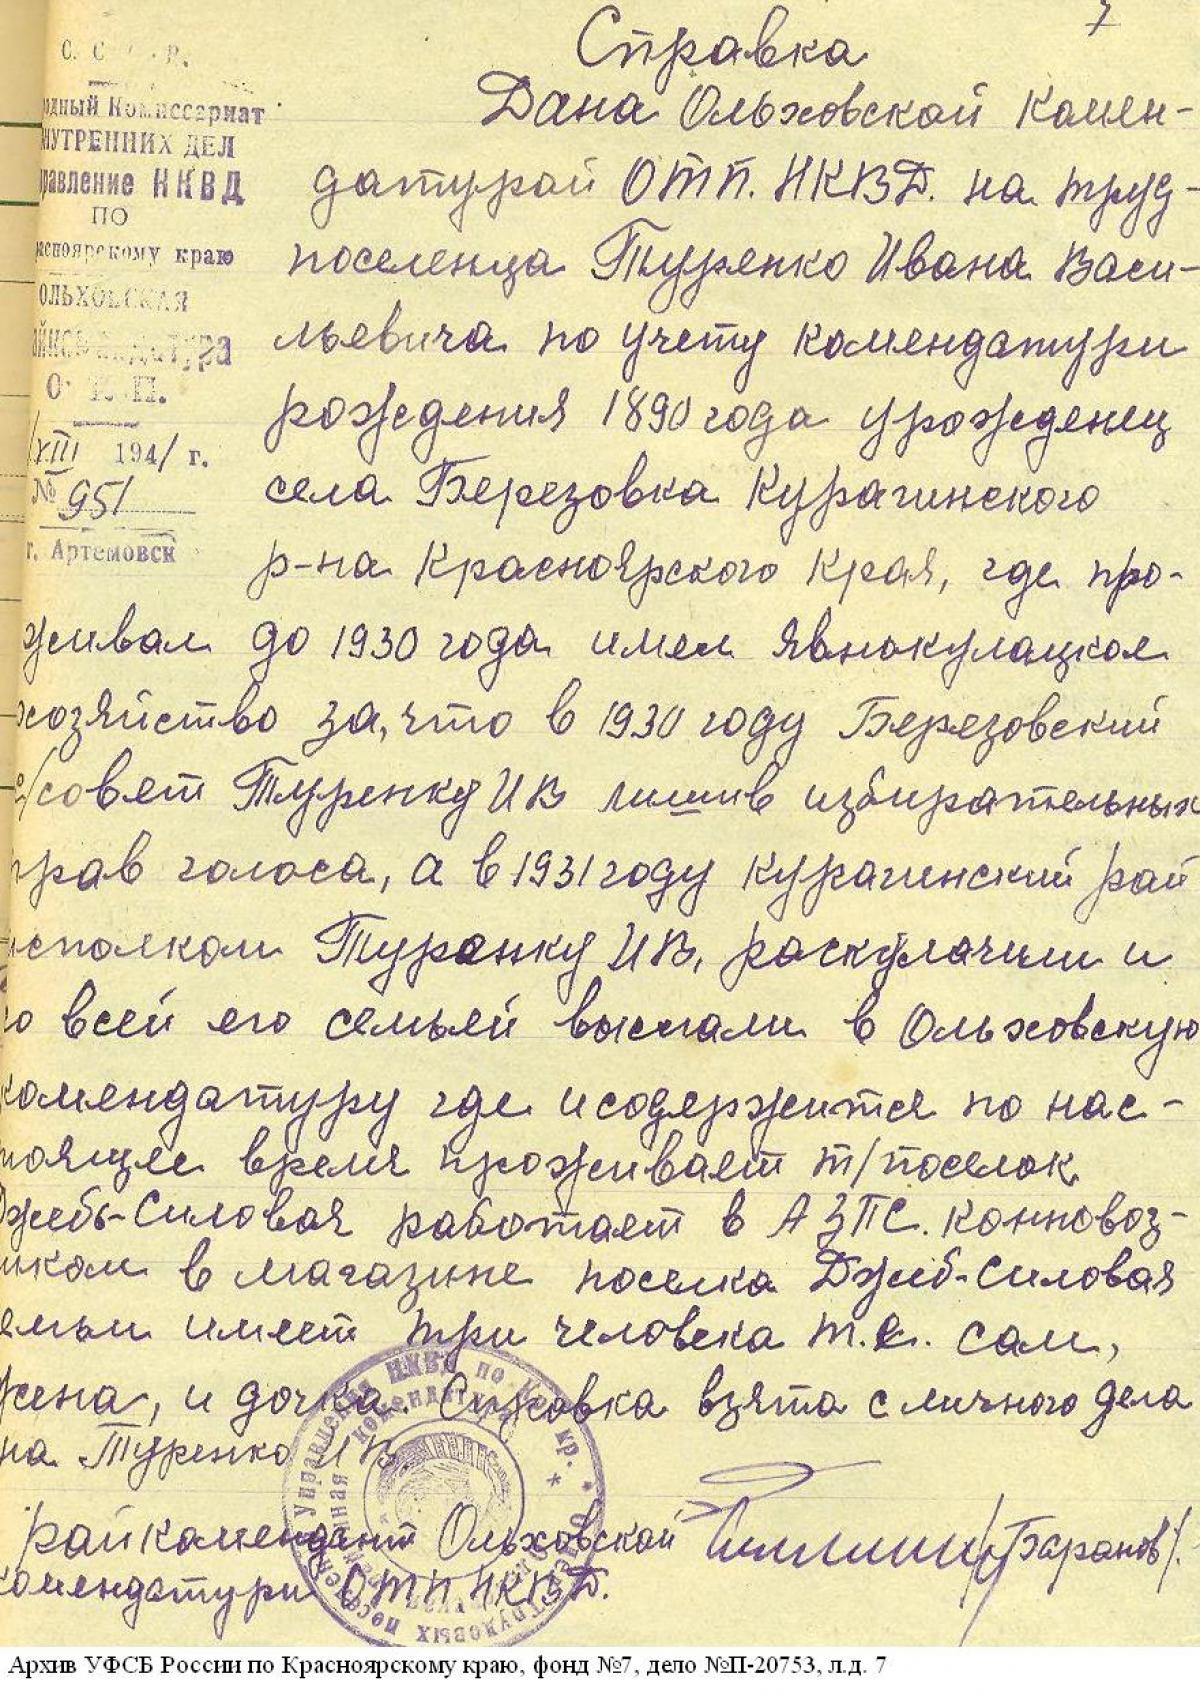 7
Справка
С. С Р.
одный Комиссариат
НУТРЕННИХ ДЕЛ
правление НКВД
ПО
асноярскому краю
ОЛЬХОВСКАЯ
О П.
VIII 1941 г.
№ 951
г. Артемовск
Дана Ольховской комен-
датурой ОТП. НКВД. на труд-
поселенца Туренко Ивана Васи-
льевича по учету комендатури
рождения 1890 года урожденец
села Березовка Курагинского
р-на Красноярского Края, где про-
живал до 1930 года имел явнокулацкое
хозяйство за, что в 1930 году Березовский
с/совет Туренку ИВ лишив избирательных
прав голоса, а в 1931 году Курагинский рай
исполком Туренку ИВ, раскулачили и
со всей его семьей выслали в Ольховскую
комендатуру где и содержится по нас-
тоящее время проживает т/поселок
Джебь-Силовая работает в АЗПС. конновоз-
чиком в магазине поселка Джеб-Силовая
семьи имеет три человека т.е. сам,
жена, и дочка. Справка взята с личного дела
на Туренко ИВ.
райкомендант Ольховской /Баранов/.
комендатури ОТП НКВД.
Управления НКВД по Кр. кр.
комендатура
трудовых поселений
Архив УФСБ России по Красноярскому краю, фонд №7, дело №П-20753, л.д. 7